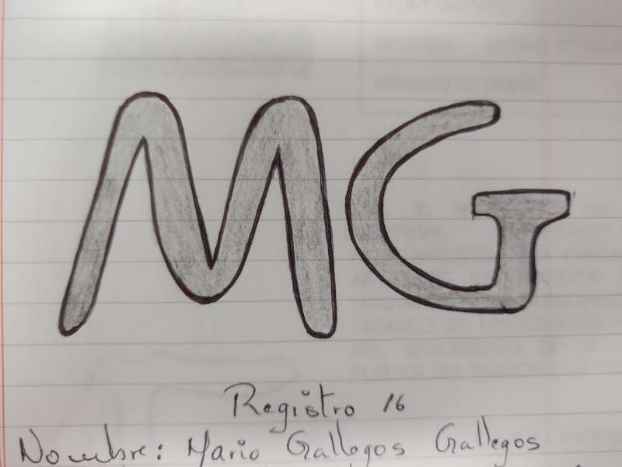 MG
Registro 16
Nombre: Mario Gallegos Gallegos